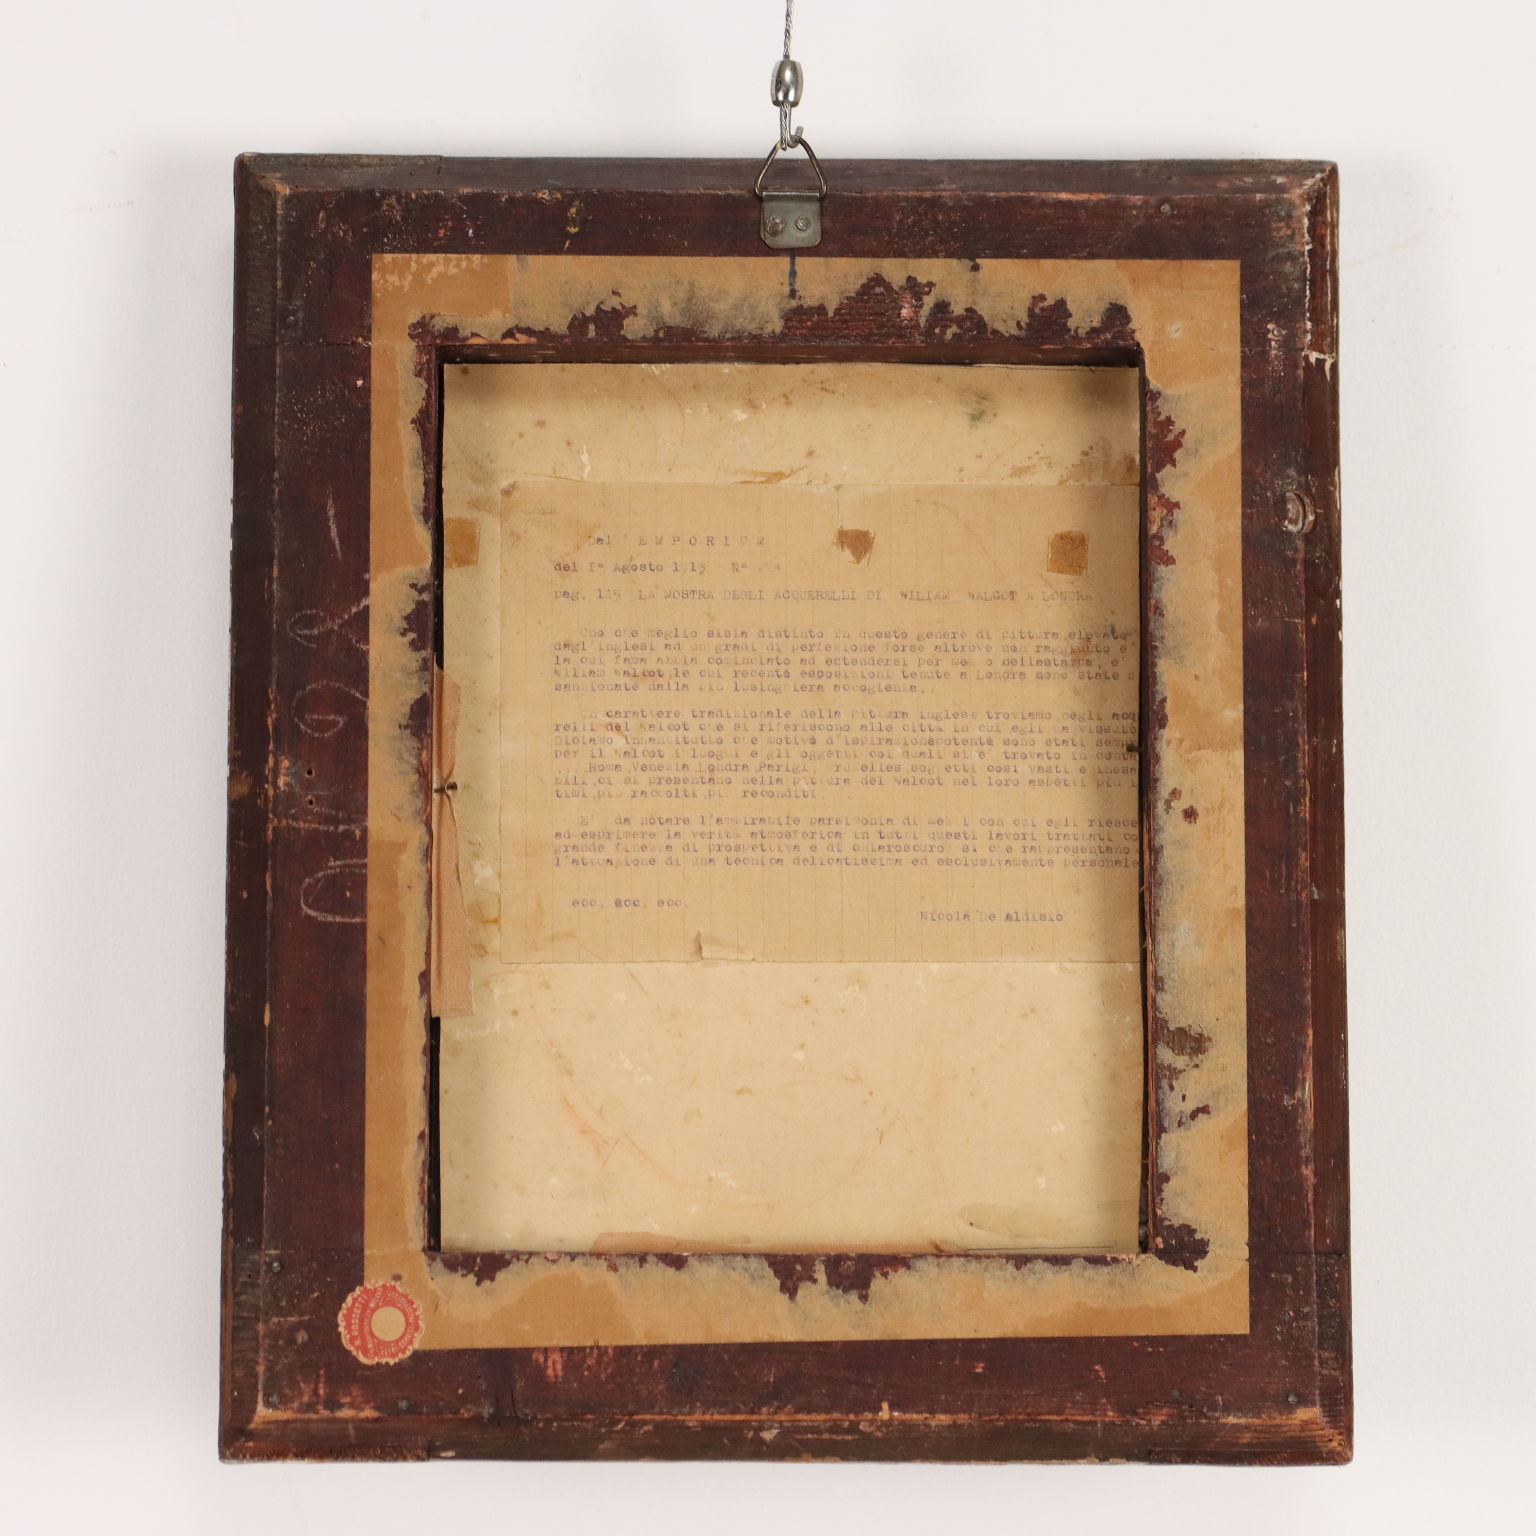 Dal EMPORIUM
del I° Agosto 1913 N°
pag. 125 LA MOSTRA DEGLI ACQUERELLI DI WILIAM WALCOT A LONDRA
Uno che meglio sisia distinto in questo genere di pittura elevato
dagl'inglesi ad un gradi di perfezione forse altrove non raggiunto e
la cui fama abbia cominciato ad estendersi per mezzo dellastampa, e'
William Walcot,le cui recente esposizioni tenute a Londra sono state s
sanzionate dalla più lusinghiera accoglienza..
Un carattere tradizionale della pittura inglese troviamo negli acq
relli del Walcot che si riferiscono alle città in cui egli ha vissuto
Diciamo innanzitutto che motivo d'ispirazionepotente sono stati sempr
per il Walcot i luoghi e gli oggetti coi quali si e' trovato in conta
... Roma Venezia Londra Parigi, ruxelles,soggetti così vasti e inesa
bili,ci si presentano nella pittura del Walcot nei loro aspetti più i
timi,più raccolti,più reconditi. ..
E' da notare l'ammirabile parsimonia di mezzi con cui egli riesce
ad esprimere la verità atmosferica in tutti questi lavori trattati co
grande finezza di prospettiva e di chiaroscuro sì che rappresentano
l'attuazione di una tecnica delicatissima ed esclusivamente personale
ecc. ecc. ecc.
Nicola De Aldisio